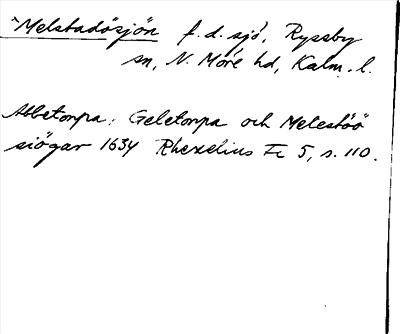 `Melstadösjön f.d. sjö, Ryssby
sn, N. Möre hd, Kalm. l.
Abbetorpa, Geletorpa och Melestöö
siögar 1634 Rhezelius Fc 5, s. 110.